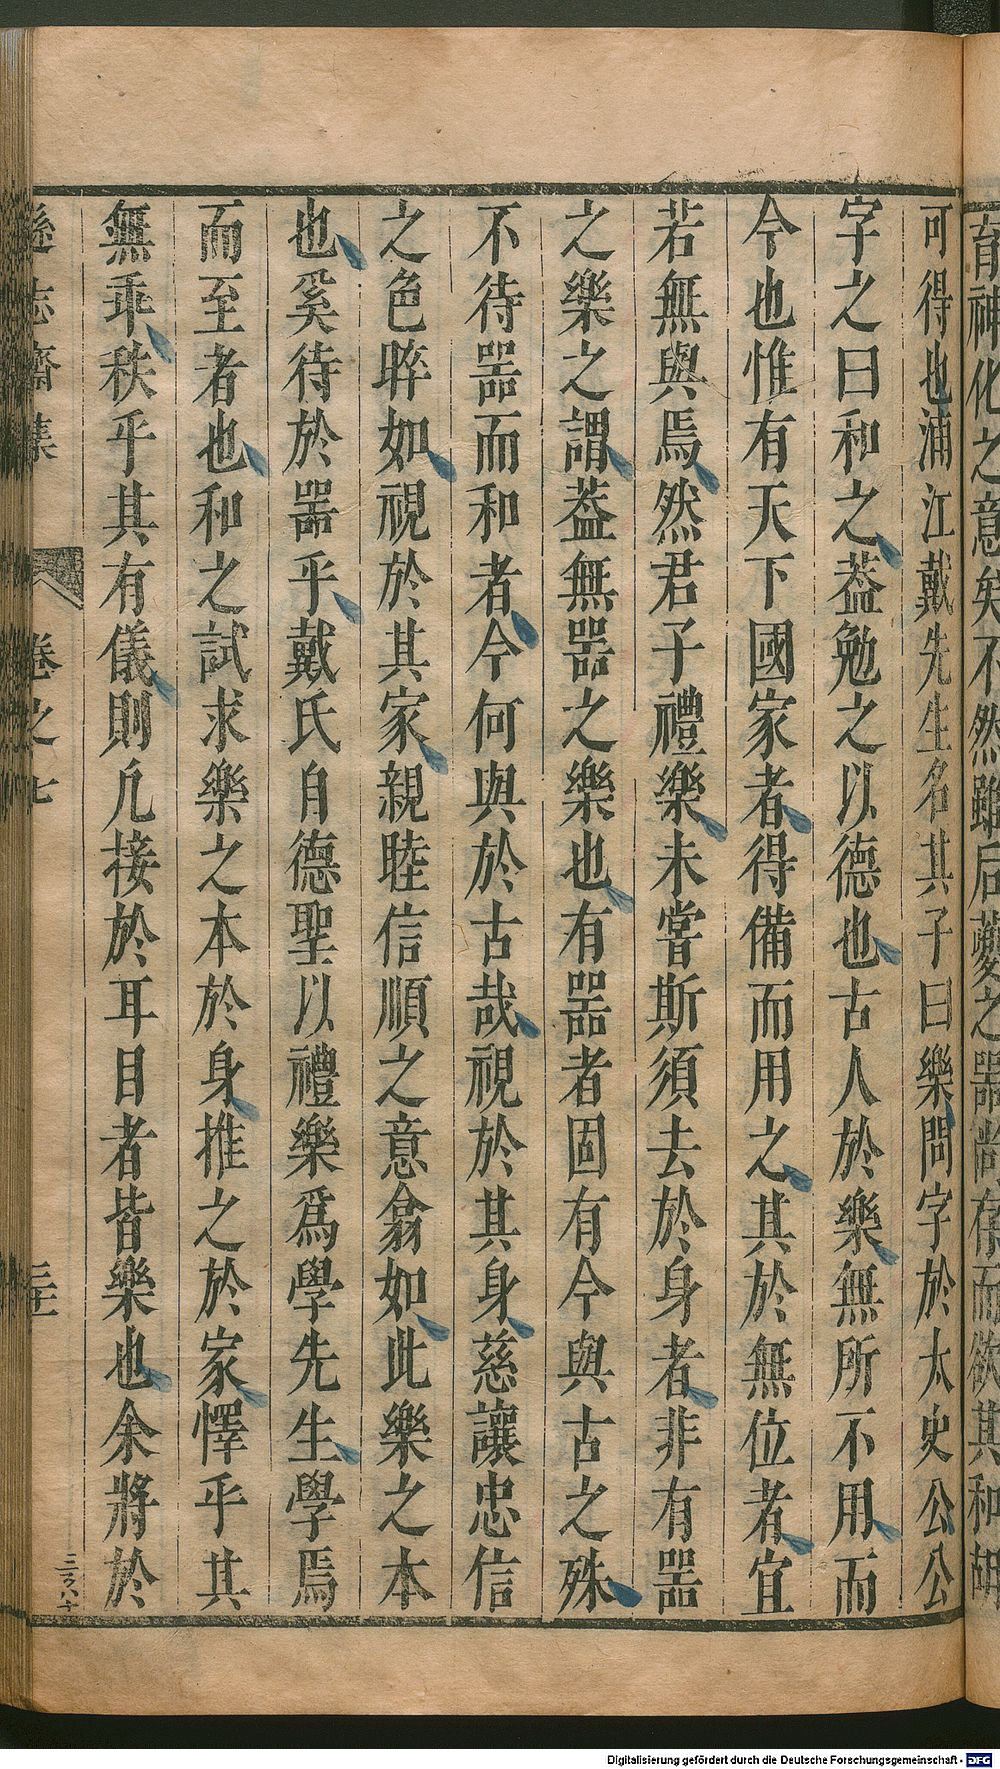 育神化之意矣不然雖后夔之器尚存而欲其和胡
可得也浦江戴先生名其子曰樂問字於太史公公
字之曰和之葢勉之以德也古人於樂無所不用而
今也惟有天下國家者得備而用之其於無位者宜
若無與焉然君子禮樂未嘗斯須去於身者非有噐
之樂之謂葢無噐之樂也有噐者固有今與古之殊
不待噐而和者今何與於古哉視於其身慈讓忠信
之色睟如視於其家親睦信順之意翕如此樂之本
也奚待於噐乎戴氏自德聖以禮樂爲學先生學焉
而至者也和之試求樂之本於身推之於家懌乎其
無乖秩乎其有儀則凢接於耳目者皆樂也余將於
遜志齋集 卷之七
Digitalisierung gefördert durch die Deutsche Forschungsgemeinschaft - DFG